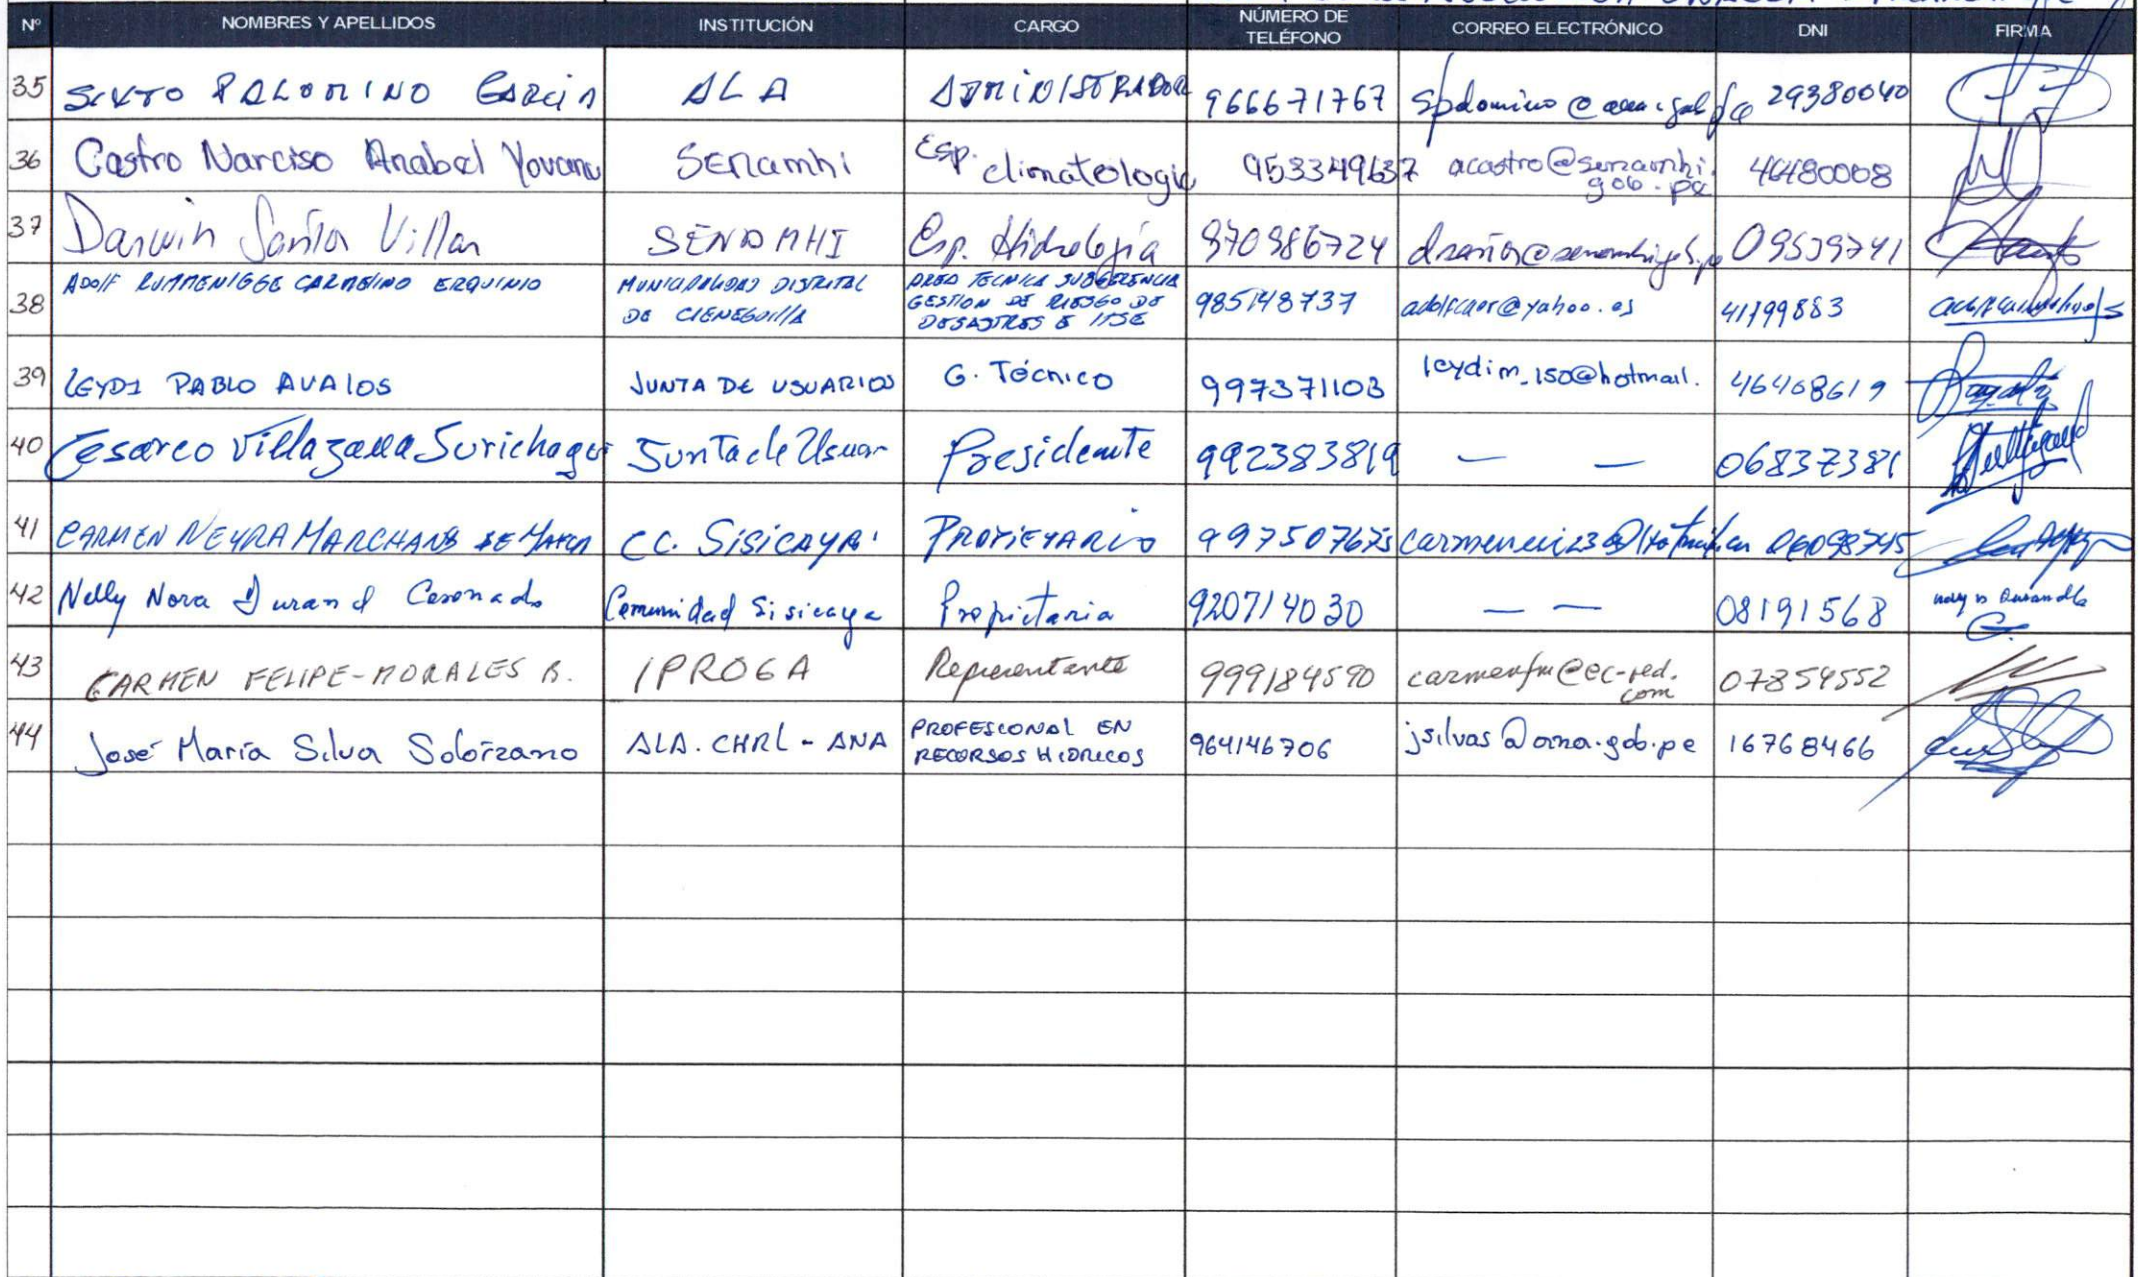 Nº NOMBRES Y APELLIDOS INSTITUCIÓN CARGO NÚMERO DE TELÉFONO CORREO ELECTRÓNICO DNI FIRMA
35 SIXTO PALOMINO GARCIA ALA ADMINISTRADOR 966671767 29380040
36 Castro Narciso Anabel Yovana Senamhi Esp. climatologia 953349637 acastro@senamhi.gob.pe 46480008
37 Darwin Santa Villar SENAMHI Esp. Hidrología 970986724 09539741
38 ADOLF RUMMENIGGE CARMELINO ERQUINIO MUNICIPALIDAD DISTRITAL DE CIENEGUILLA AREA TECNICA SUBGERENCIA GESTION DE RIESGO DE DESASTRES E ITSE 985148737 adolfcaer@yahoo.es 41199883
39 LEYDI PABLO AVALOS JUNTA DE USUARIOS G. Técnico 997371103 leydim_150@hotmail. 46408619
40 Cesareo Villazana Surichaqui Junta de Usuar Presidente 992383819 — — 06837381
41 CARMEN NEYRA MARCHAND DE CC. SISICAYA PROPIETARIO 997507675 06098745
42 Nelly Nora Durand Coronado Comunidad Sisicaya Propietaria 920714030 — — 08191568
43 CARMEN FELIPE-MORALES B. IPROGA Representante 999184590 carmenfm@ec-red.com 07854552
44 José María Silva Solórzano ALA. CHRL - ANA PROFESIONAL EN RECURSOS HIDRICOS 964146706 jsilvas@ana.gob.pe 16768466